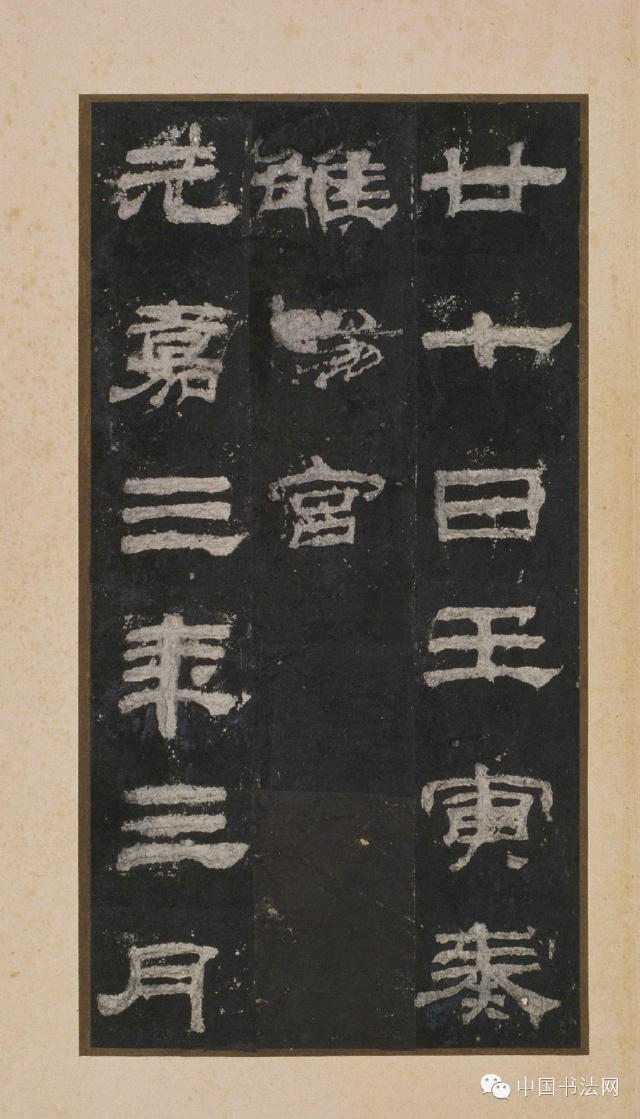 廿七日壬寅奏
雒陽宮
元嘉三年三月
中国书法网